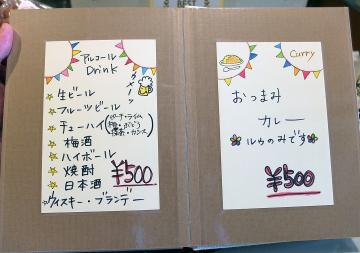 アルコール
Drink
生ビール
フルーツビール
チューハイ(ピーチ・ライム
梅・ぶどう
カシス)
梅酒
ハイボール
焼酎
日本酒
¥500
ウィスキー・ブランデー
Curry
おつまみ
カレー
ルゥのみです
¥500